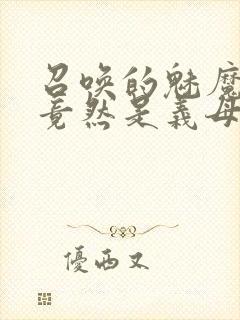 召唤的魅魔
竟然是义母
優西又